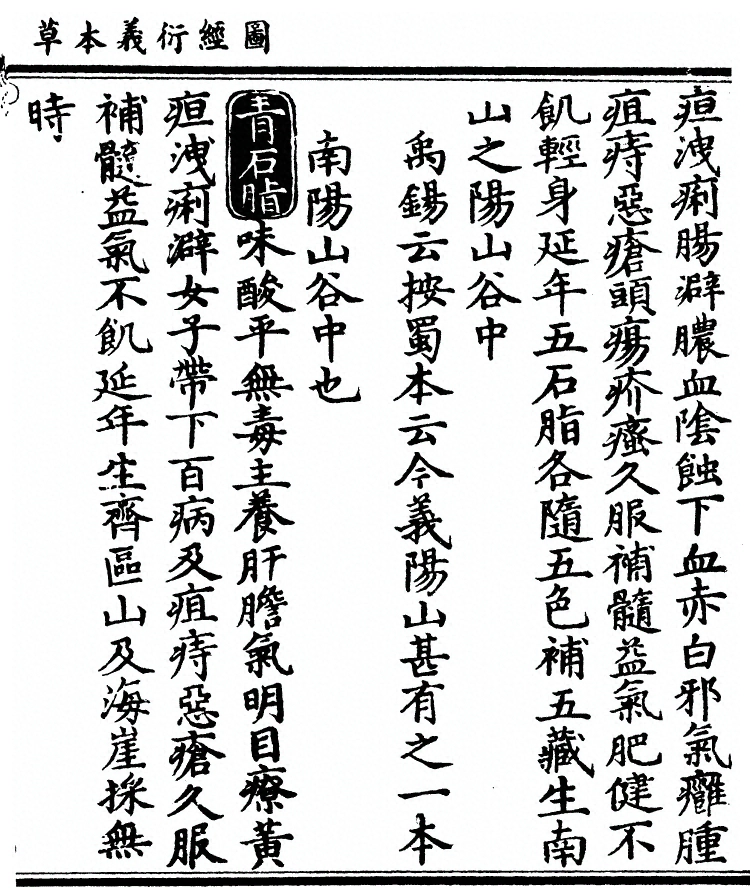 圖經衍義本草
疸洩痢腸澼膿血陰蝕下血赤白邪氣癰腫
疽痔惡瘡頭瘍疥瘙久服補髓益氣肥健不
飢輕身延年五石脂各隨五色補五藏生南
山之陽山谷中
禹錫云按蜀本云今義陽山甚有之一本
南陽山谷中也
青石脂味酸平無毒主養肝膽氣明目療黃
疸洩痢澼女子帶下百病及疽痔惡瘡久服
補髓益氣不飢延年生齊區山及海崖採無
時